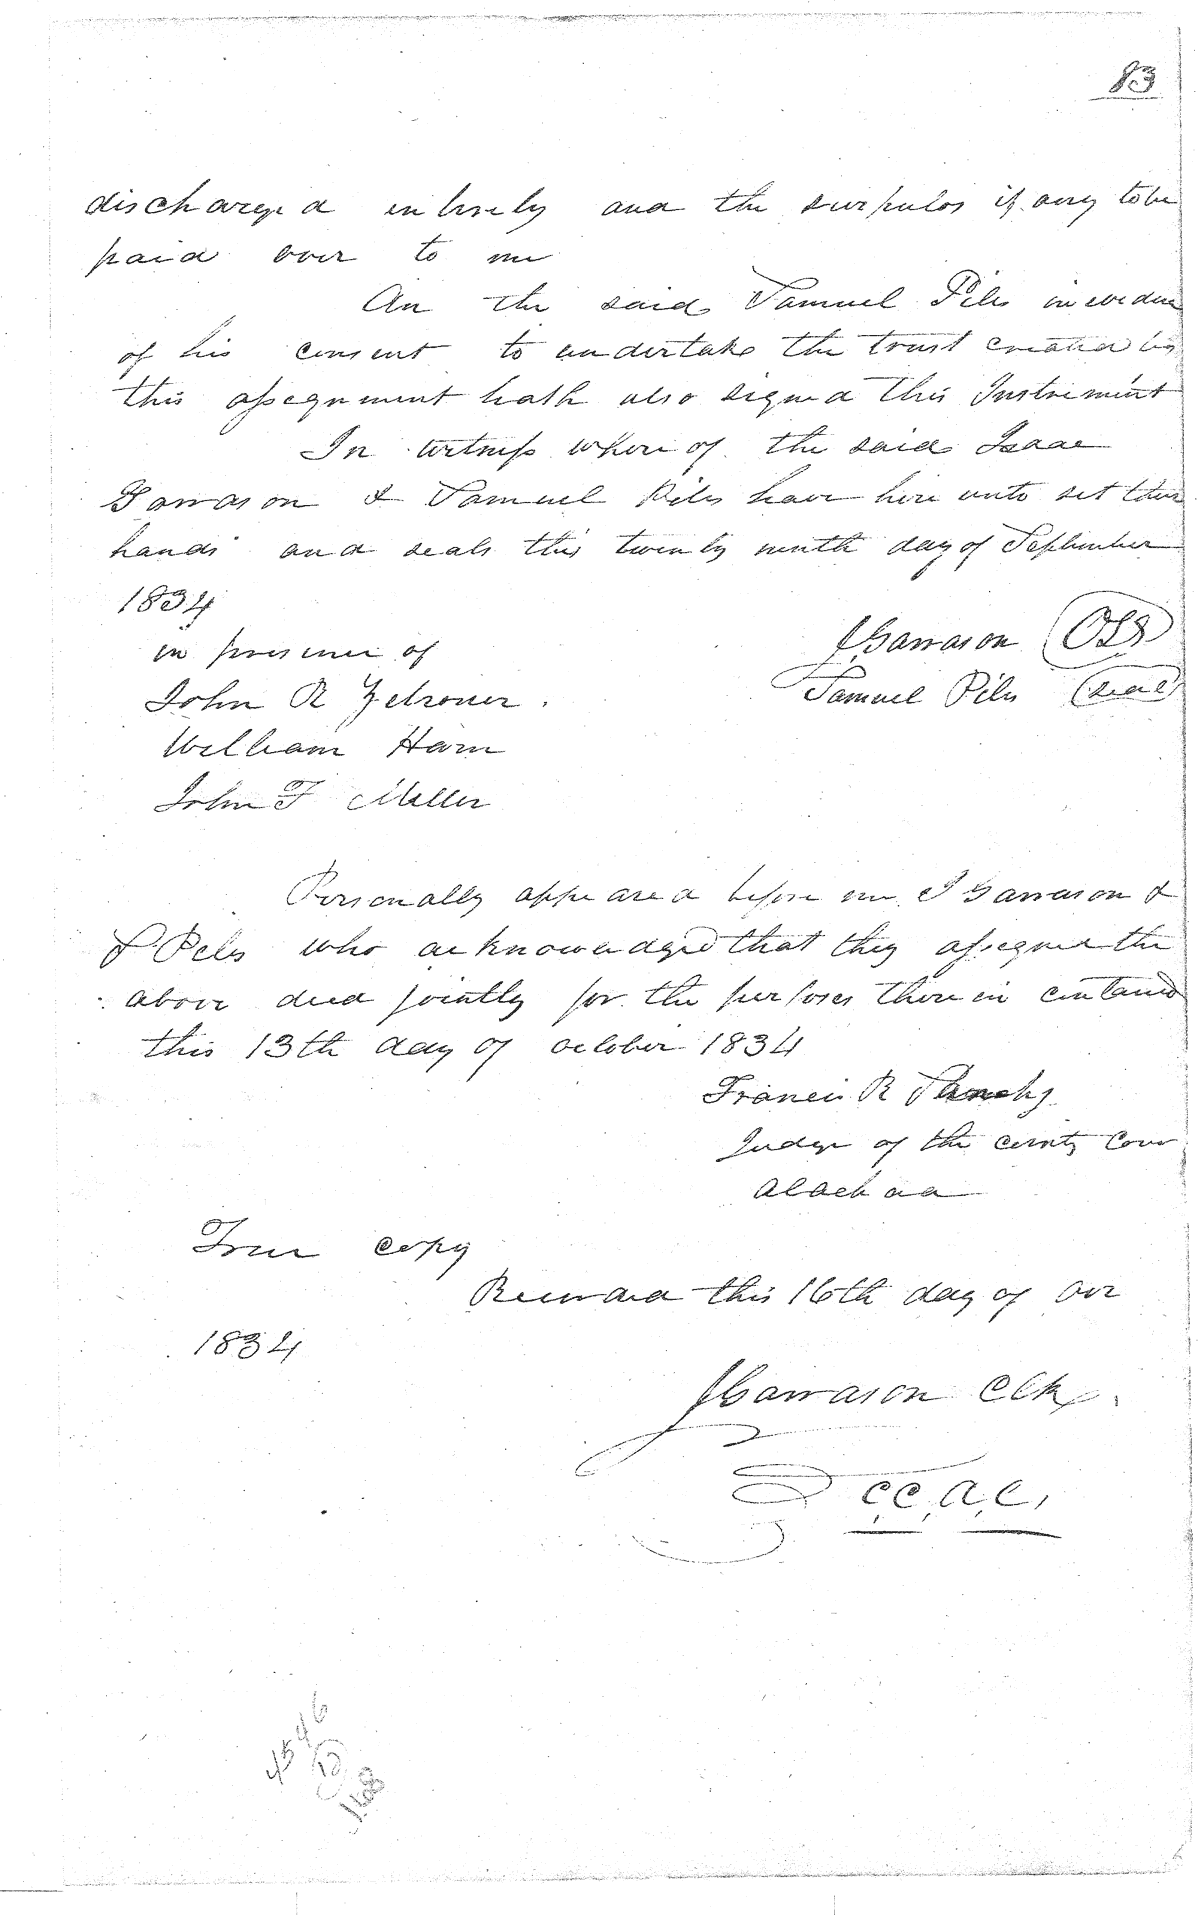 83
discharged entirely and the surpulos if any to be
paid over to me
An the said Samuel Piles in evedence
of his consent to undertake the trust created by
this assegnment hath also signed this Instriment
In witness where of the said Isaac
Garrason & Samuel Piles have here unto set their
hands and seals this twenty ninth day of September
1834
in presence of
I Garrason
John R Zetrouer
Samuel Piles (seal)
William Ham
John F Miller
Personally appeared before me I Garrason &
S Piles who acknowledged that they assegned the
above deed jointly for the purposes there in contained
this 13th day of october 1834
Francis R Sanchez
Judge of the county Cour
Alachua
True copy
Recorded this 16th day of Oct
1834
I Garrason Clk
C C A C